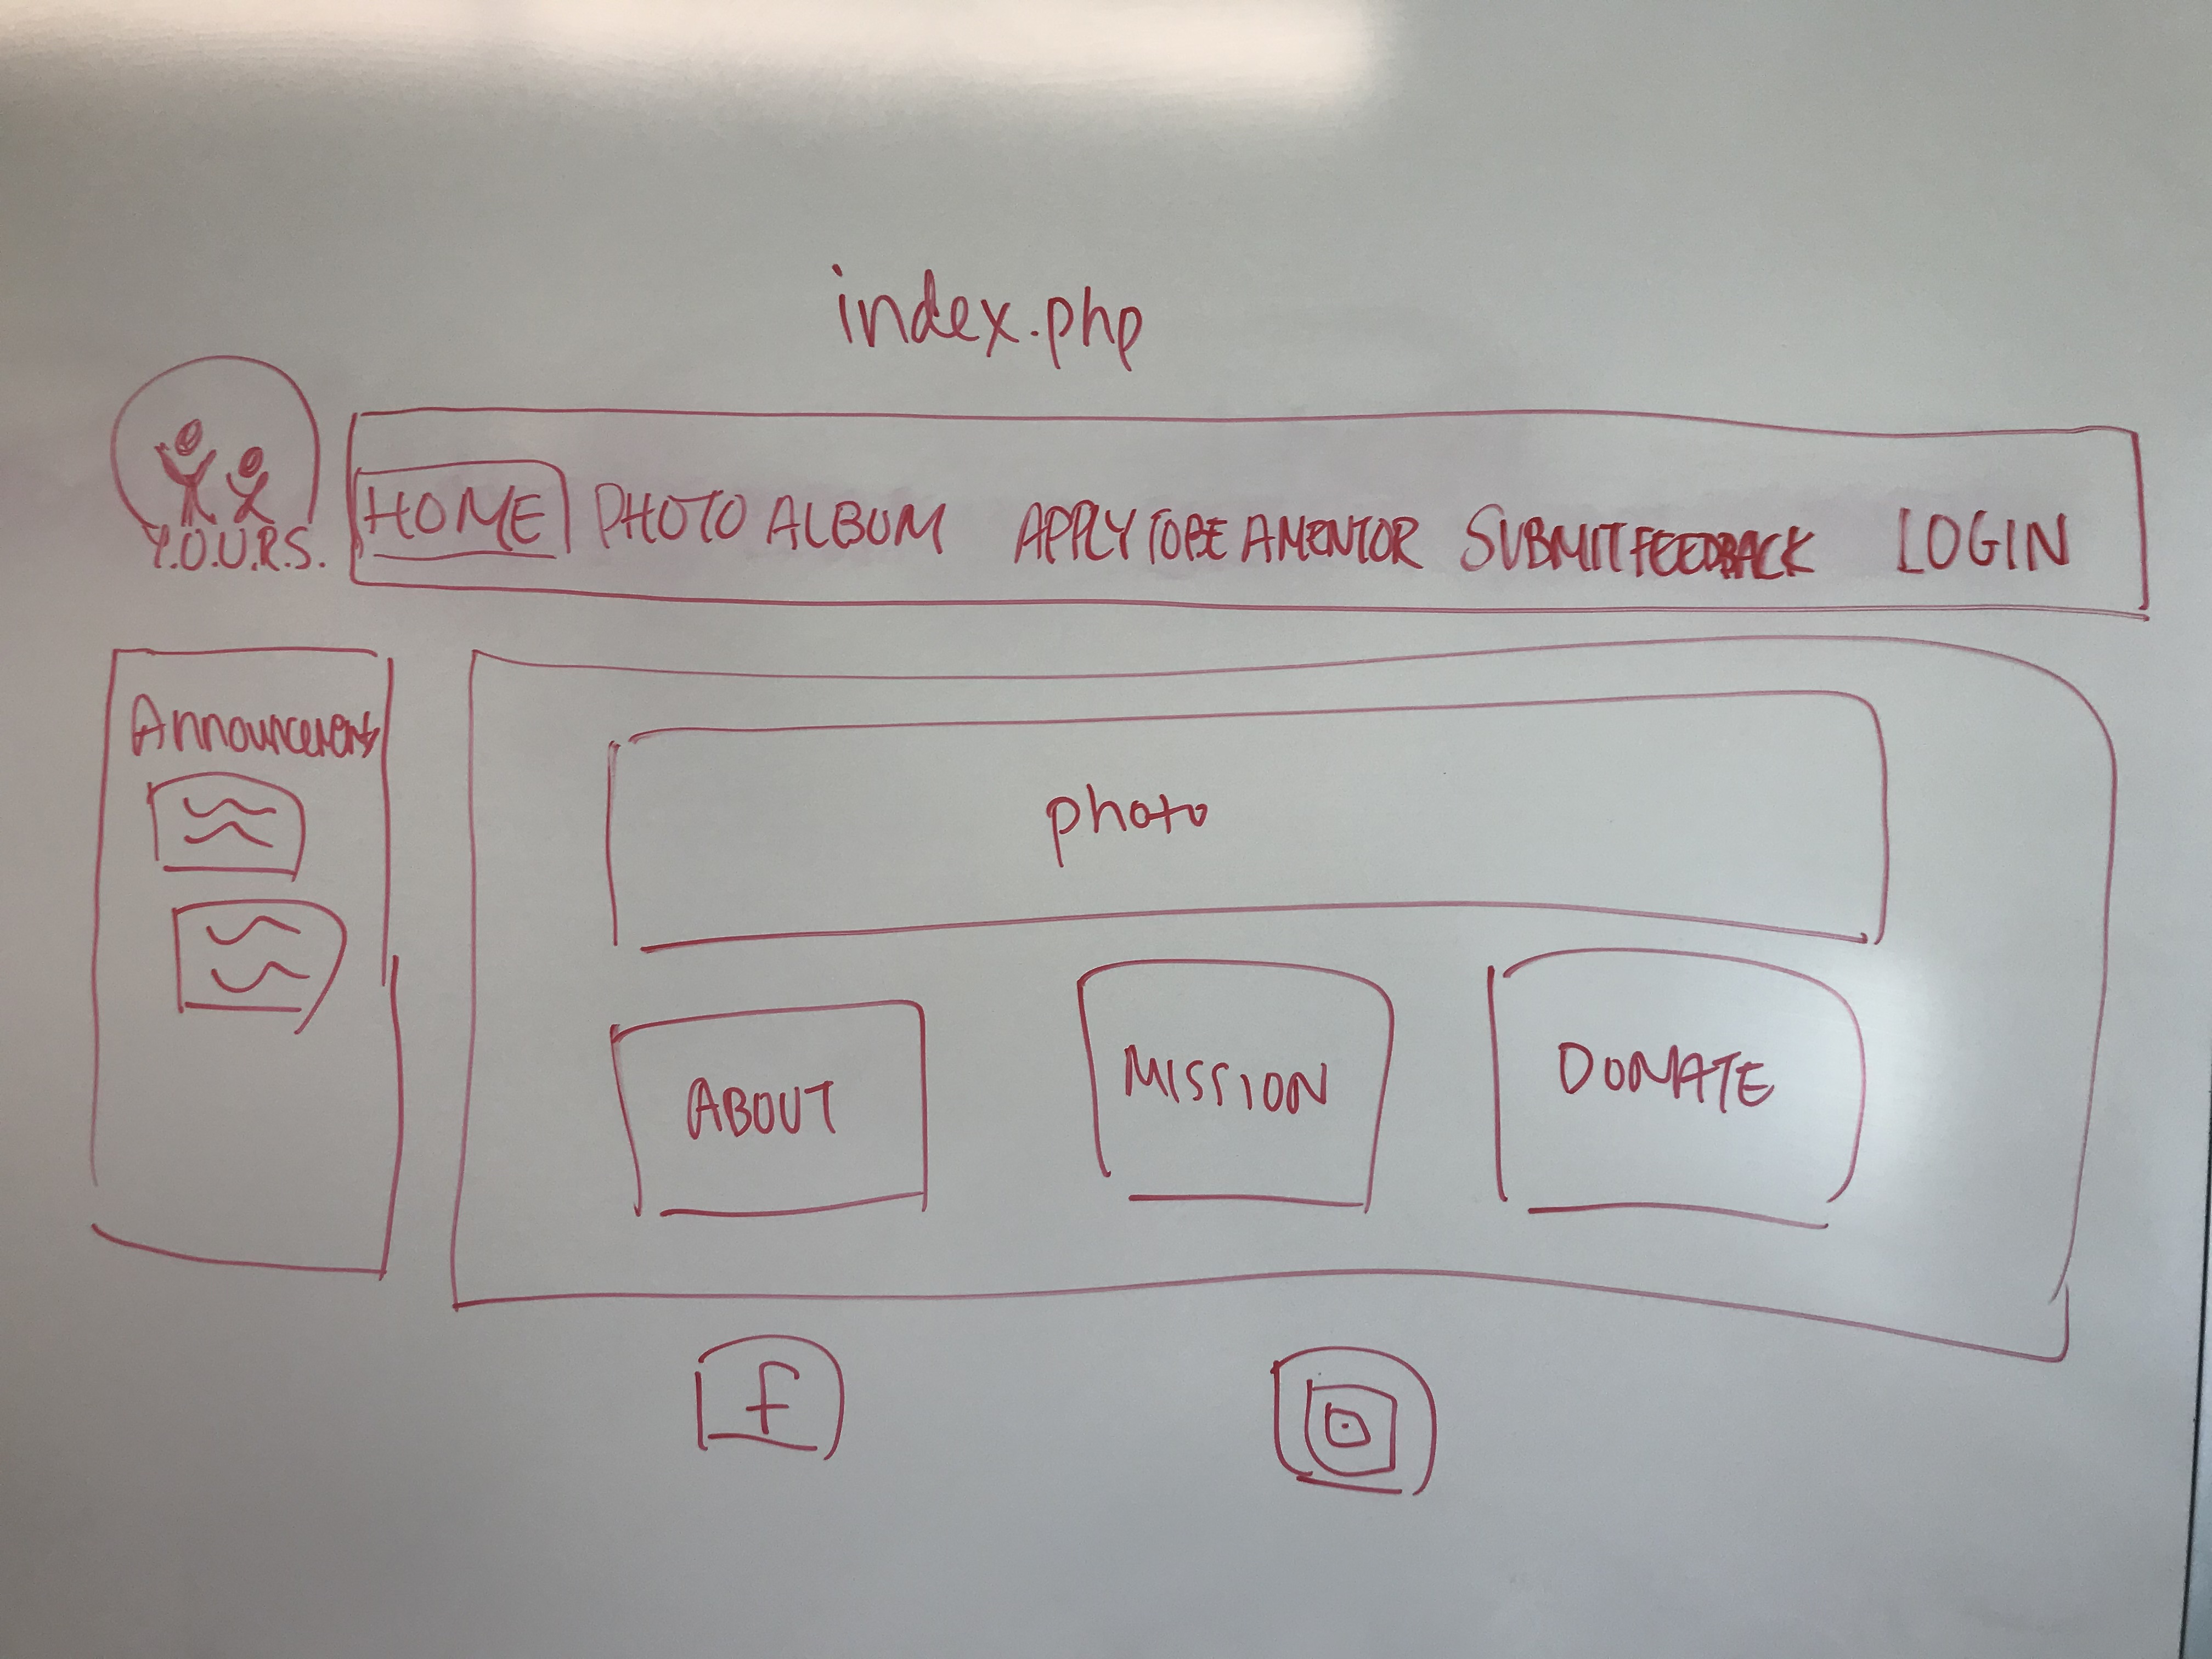 index.php
Y.O.U.R.S.
HOME PHOTO ALBUM APPLY TO BE A MENTOR SUBMIT FEEDBACK LOGIN
Announcements
photo
ABOUT
MISSION
DONATE
f